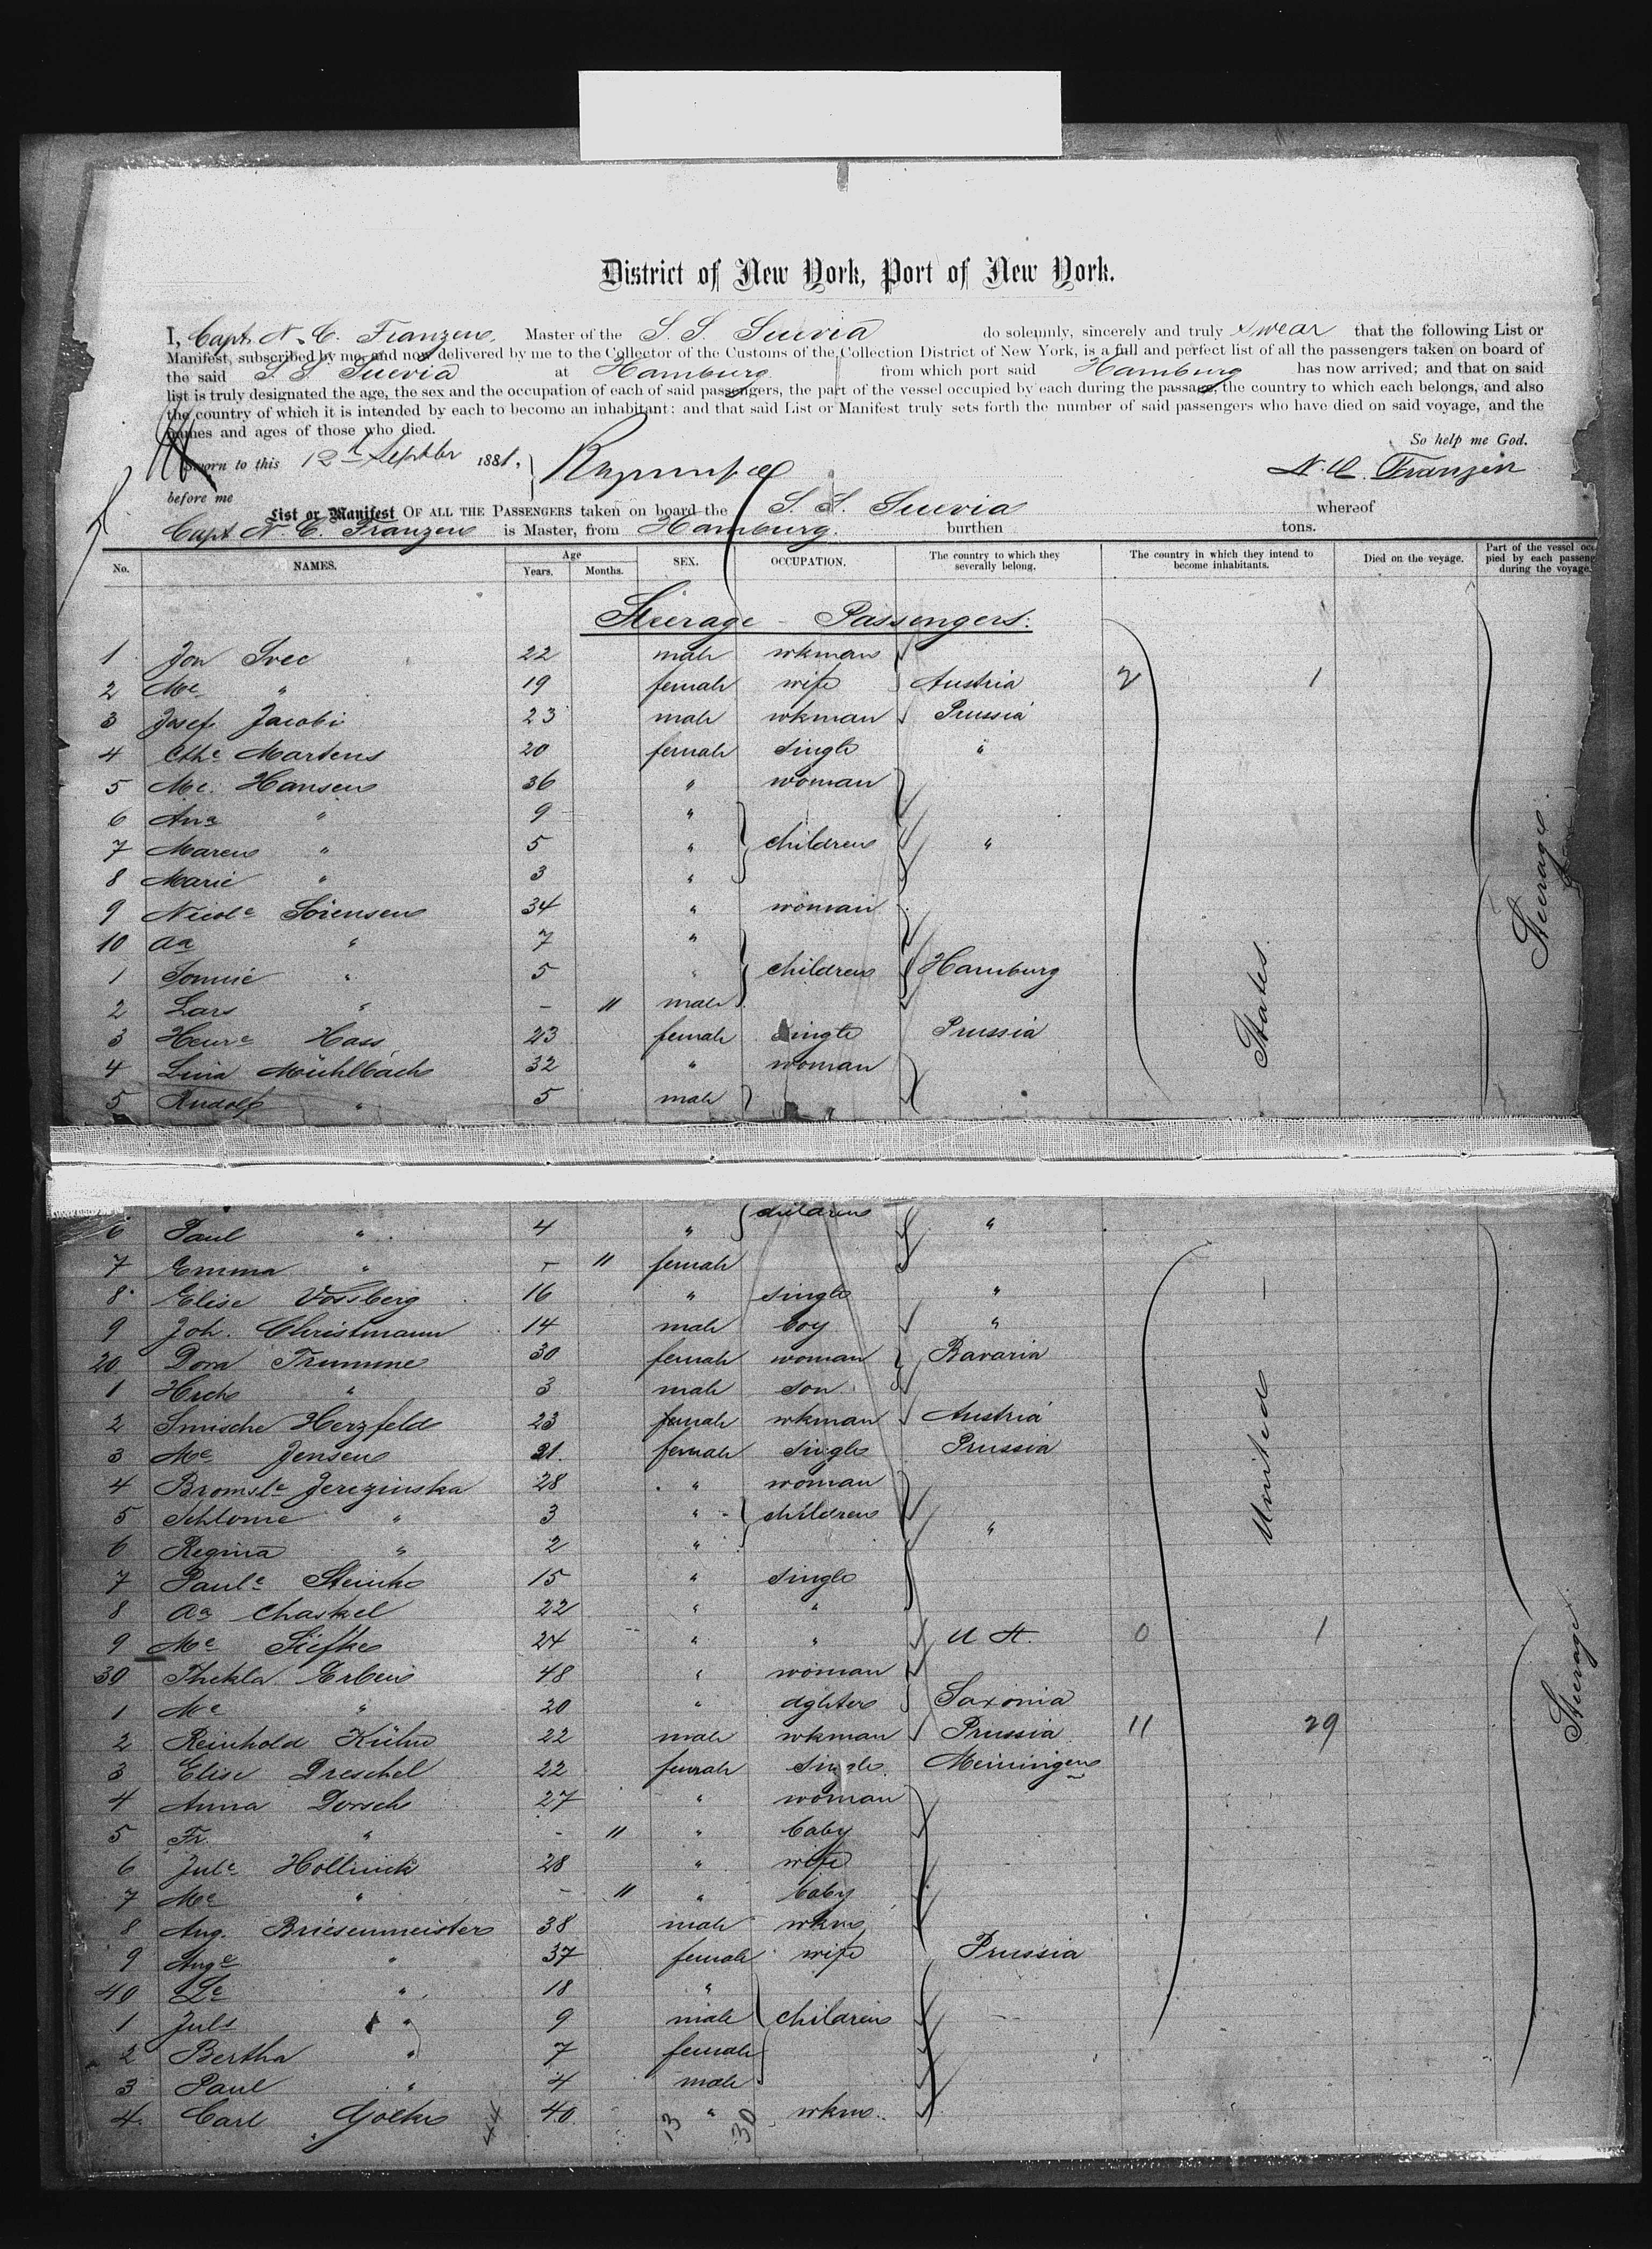 District of New York, Port of New York.
I, Capt. N. C. Franzen, Master of the S. S. Suevia do solemnly, sincerely and truly swear that the following List or
Manifest, subscribed by me, and now delivered by me to the Collector of the Customs of the Collection District of New York, is a full and perfect list of all the passengers taken on board of
the said S. S. Suevia at Hamburg from which port said Hamburg has now arrived; and that on said
list is truly designated the age, the sex and the occupation of each of said passengers, the part of the vessel occupied by each during the passage, the country to which each belongs, and also
the country of which it is intended by each to become an inhabitant: and that said List or Manifest truly sets forth the number of said passengers who have died on said voyage, and the
names and ages of those who died.
So help me God.
Sworn to this 12th Septbr 1881, N. C. Franzen
before me
List or Manifest OF ALL THE PASSENGERS taken on board the S. S. Suevia whereof
Capt N. C. Franzen is Master, from Hamburg. burthen tons.
No. NAMES. Age Years. Months. SEX. OCCUPATION. The country to which they severally belong. The country in which they intend to become inhabitants. Died on the voyage. Part of the vessel occupied by each passenger during the voyage.
Steerage - Passengers:
1 Jon Svec 22 male wkman
2 Me " 19 female wife Austria 2 1
3 Josef Jacobi 23 male wkman Prussia
4 Cthe Martens 20 female single "
5 Me. Hansen 36 " woman
6 Ana " 9 "
7 Maren " 5 " children "
8 Marie " 3 "
9 Nicole Sörensen 34 " woman
10 Aa " 7 "
1 Sonnie " 5 " children Hamburg
2 Lars " - 11 male
3 Henre Hass 23 female single Prussia
4 Lina Mühlbach 32 " woman
5 Rudolf " 5 male
6 Paul " 4 " children "
7 Emma " - 11 female
8 Elise Vossberg 16 " single "
9 Joh. Christmann 14 male boy "
20 Dora Trumme 30 female woman Bavaria
1 Hrch " 3 male son
2 Smische Herzfeld 23 female wkman Austria
3 Me Jensen 21. female single Prussia
4 Bromsle Jerezinska 28 " woman
5 Schlome " 3 " children
6 Regina " 2 " "
7 Paule Steinke 15 " single
8 Aa Chaskel 22 " "
9 Me Siefke 24 " " U St. 0 1
30 Thekla Erben 48 " woman
1 Me " 20 " dghter Saxonia
2 Reinhold Kühn 22 male wkman Prussia 11 29
3 Elise Dreschel 22 female single Meiningen
4 Anna Dorsch 27 " woman
5 Fr. " - 11 " baby
6 Jule Hollinck 28 " wife
7 Me " - 11 " baby
8 Aug. Briesenmeister 38 male wkm
9 Auge " 37 female wife Prussia
40 Le " 18 "
1 Juls " 9 male children
2 Bertha " 7 female
3 Paul " 4 male
4 Carl Golke 40 " wkm.
44 13 30
United States
Steerage.
Steerage